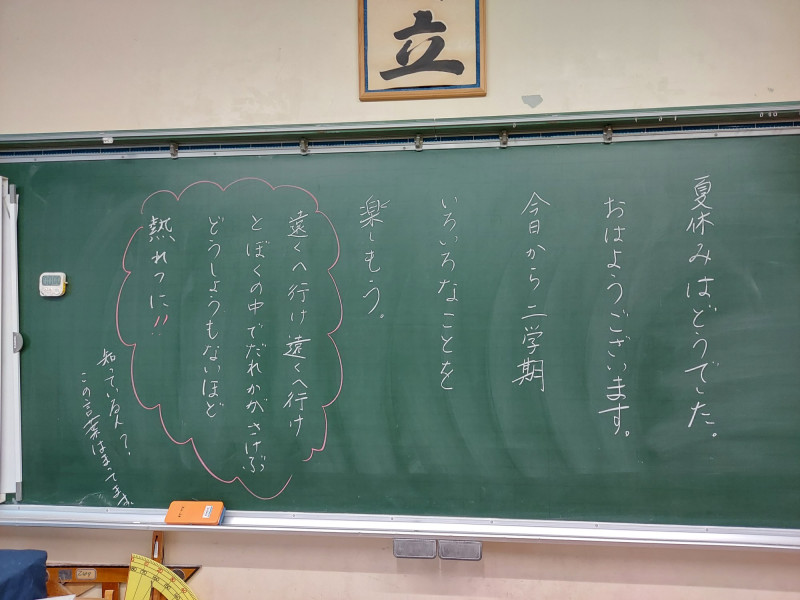 立
夏休みはどうでした。
おはようございます。
今日から二学期
いろいろなことを
楽しもう。
遠くへ行け遠くへ行け
とぼくの中でだれかがさけぶ
どうしようもないほど
熱れつに!!
知っている人?
この言葉はまってます